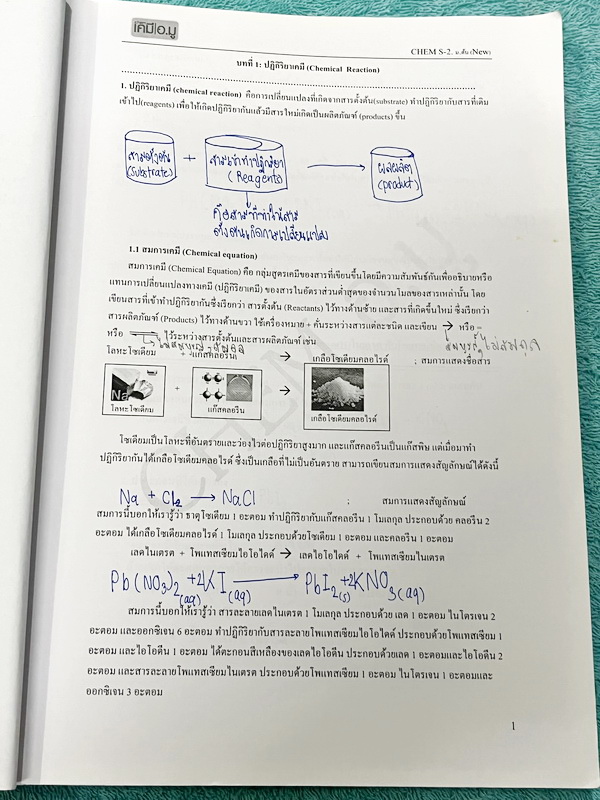 เคมี อ.มู
CHEM S-2. ม.ต้น (New)
บทที่ 1: ปฏิกิริยาเคมี (Chemical Reaction)
1. ปฏิกิริยาเคมี (chemical reaction) คือการเปลี่ยนแปลงที่เกิดจากสารตั้งต้น(substrate) ทำปฏิกิริยากับสารที่เติม
เข้าไป(reagents) เพื่อให้เกิดปฏิกิริยากันแล้วมีสารใหม่เกิดเป็นผลิตภัณฑ์ (products) ขึ้น
สารตั้งต้น (substrate) + สารเข้าทำปฏิกิริยา (Reagents) → ผลผลิต (product)
คือสารที่ทำให้สาร
ตั้งต้นเกิดการเปลี่ยนแปลง
1.1 สมการเคมี (Chemical equation)
สมการเคมี (Chemical Equation) คือ กลุ่มสูตรเคมีของสารที่เขียนขึ้นโดยมีความสัมพันธ์กันเพื่ออธิบายหรือ
แทนการเปลี่ยนแปลงทางเคมี (ปฏิกิริยาเคมี) ของสารในอัตราส่วนต่ำสุดของจำนวนโมลของสารเหล่านั้น โดย
เขียนสารที่เข้าทำปฏิกิริยากันซึ่งเรียกว่า สารตั้งต้น (Reactants) ไว้ทางด้านซ้าย และสารที่เกิดขึ้นใหม่ ซึ่งเรียกว่า
สารผลิตภัณฑ์ (Products) ไว้ทางด้านขวา ใช้เครื่องหมาย + คั่นระหว่างสารแต่ละชนิด และเขียน → หรือ
หรือ ไว้ระหว่างสารตั้งต้นและสารผลิตภัณฑ์ เช่น
โลหะโซเดียม + แก๊สคลอรีน → เกลือโซเดียมคลอไรด์ ; สมการแสดงชื่อสาร
Na + →
โลหะโซเดียม แก๊สคลอรีน เกลือโซเดียมคลอไรด์
โซเดียมเป็นโลหะที่อันตรายและว่องไวต่อปฏิกิริยาสูงมาก และแก๊สคลอรีนเป็นแก๊สพิษ แต่เมื่อมาทำ
ปฏิกิริยากันได้เกลือโซเดียมคลอไรด์ ซึ่งเป็นเกลือที่ไม่เป็นอันตราย สามารถเขียนสมการแสดงสัญลักษณ์ได้ดังนี้
Na + Cl₂ → NaCl ; สมการแสดงสัญลักษณ์
สมการนี้บอกให้เรารู้ว่า ธาตุโซเดียม 1 อะตอม ทำปฏิกิริยากับแก๊สคลอรีน 1 โมเลกุล ประกอบด้วย คลอรีน 2
อะตอม ได้เกลือโซเดียมคลอไรด์ 1 โมเลกุล ประกอบด้วยโซเดียม 1 อะตอม และคลอรีน 1 อะตอม
เลดไนเตรต + โพแทสเซียมไอโอไดด์ → เลดไอโอไดด์ + โพแทสเซียมไนเตรต
Pb(NO₃)₂(aq) + 2KI(aq) → PbI₂(s) + 2KNO₃(aq)
สมการนี้บอกให้เรารู้ว่า สารละลายเลดไนเตรต 1 โมเลกุล ประกอบด้วย เลด 1 อะตอม ไนโตรเจน 2
อะตอม และออกซิเจน 6 อะตอม ทำปฏิกิริยากับสารละลายโพแทสเซียมไอโอไดด์ ประกอบด้วยโพแทสเซียม 1
อะตอม และไอโอดีน 1 อะตอม ได้ตะกอนสีเหลืองของเลดไอโอดีน ประกอบด้วยเลด 1 อะตอมและไอโอดีน 2
อะตอม และสารละลายโพแทสเซียมไนเตรต ประกอบด้วยโพแทสเซียม 1 อะตอม ไนโตรเจน 1 อะตอมและ
ออกซิเจน 3 อะตอม
1